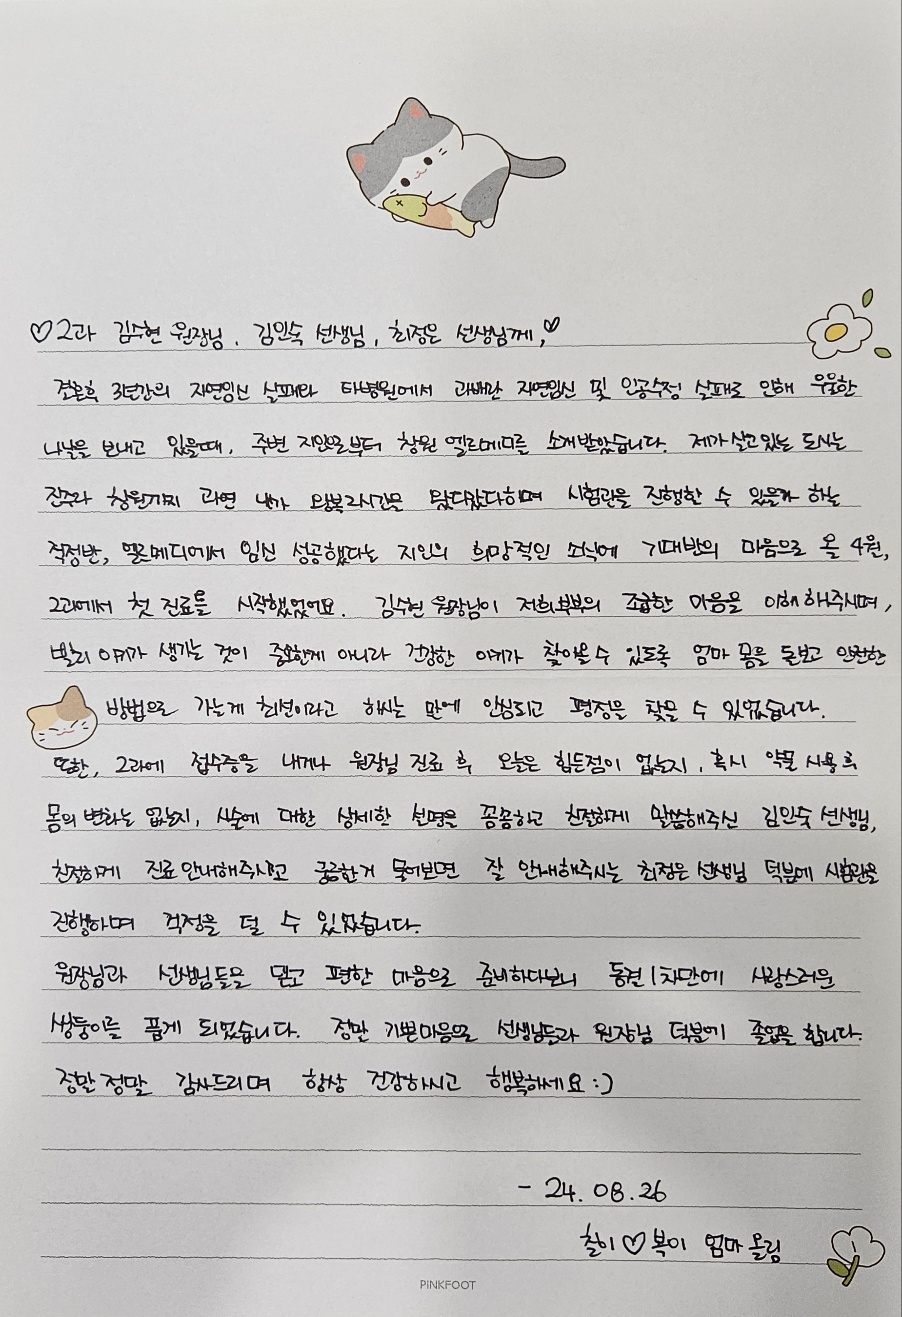 ♡2과 김수현 원장님, 김인숙 선생님, 최정은 선생님께,♡
결혼후 3년간의 자연임신 실패와 타병원에서 과배란 자연임신 및 인공수정 실패로 인해 우울한
나날을 보내고 있을때, 주변 지인으로부터 창원 엘르메디를 소개받았습니다. 제가 살고 있는 도시는
진주라 창원까지 과연 내가 왕복2시간을 왔다갔다하며 시험관을 진행할 수 있을까 하는
걱정반, 엘르메디에서 임신 성공했다는 지인의 희망적인 소식에 기대반의 마음으로 올 4월,
2과에서 첫 진료를 시작했었어요. 김수현 원장님이 저희부부의 조급한 마음을 이해해주시며,
빨리 아기가 생기는 것이 중요한게 아니라 건강한 아기가 찾아올 수 있도록 엄마 몸을 돌보고 안전한
방법으로 가는게 최선이라고 하시는 말에 안심되고 평정을 찾을 수 있었습니다.
또한, 2과에 접수증을 내거나 원장님 진료 후 오늘은 힘든점이 없는지, 혹시 약물 사용 후
몸의 변화는 없는지, 시술에 대한 상세한 설명을 꼼꼼하고 친절하게 말씀해주신 김인숙 선생님,
친절하게 진료 안내해주시고 궁금한거 물어보면 잘 안내해주시는 최정은 선생님 덕분에 시험관을
진행하며 걱정을 덜 수 있었습니다.
원장님과 선생님들을 믿고 편한 마음으로 준비하다보니 동결 1차만에 사랑스러운
쌍둥이를 품게 되었습니다. 정말 기쁜마음으로 선생님들과 원장님 덕분에 졸업을 합니다.
정말 정말 감사드리며 항상 건강하시고 행복하세요 :)
- 24. 08. 26
찰이♡복이 엄마 올림
PINKFOOT